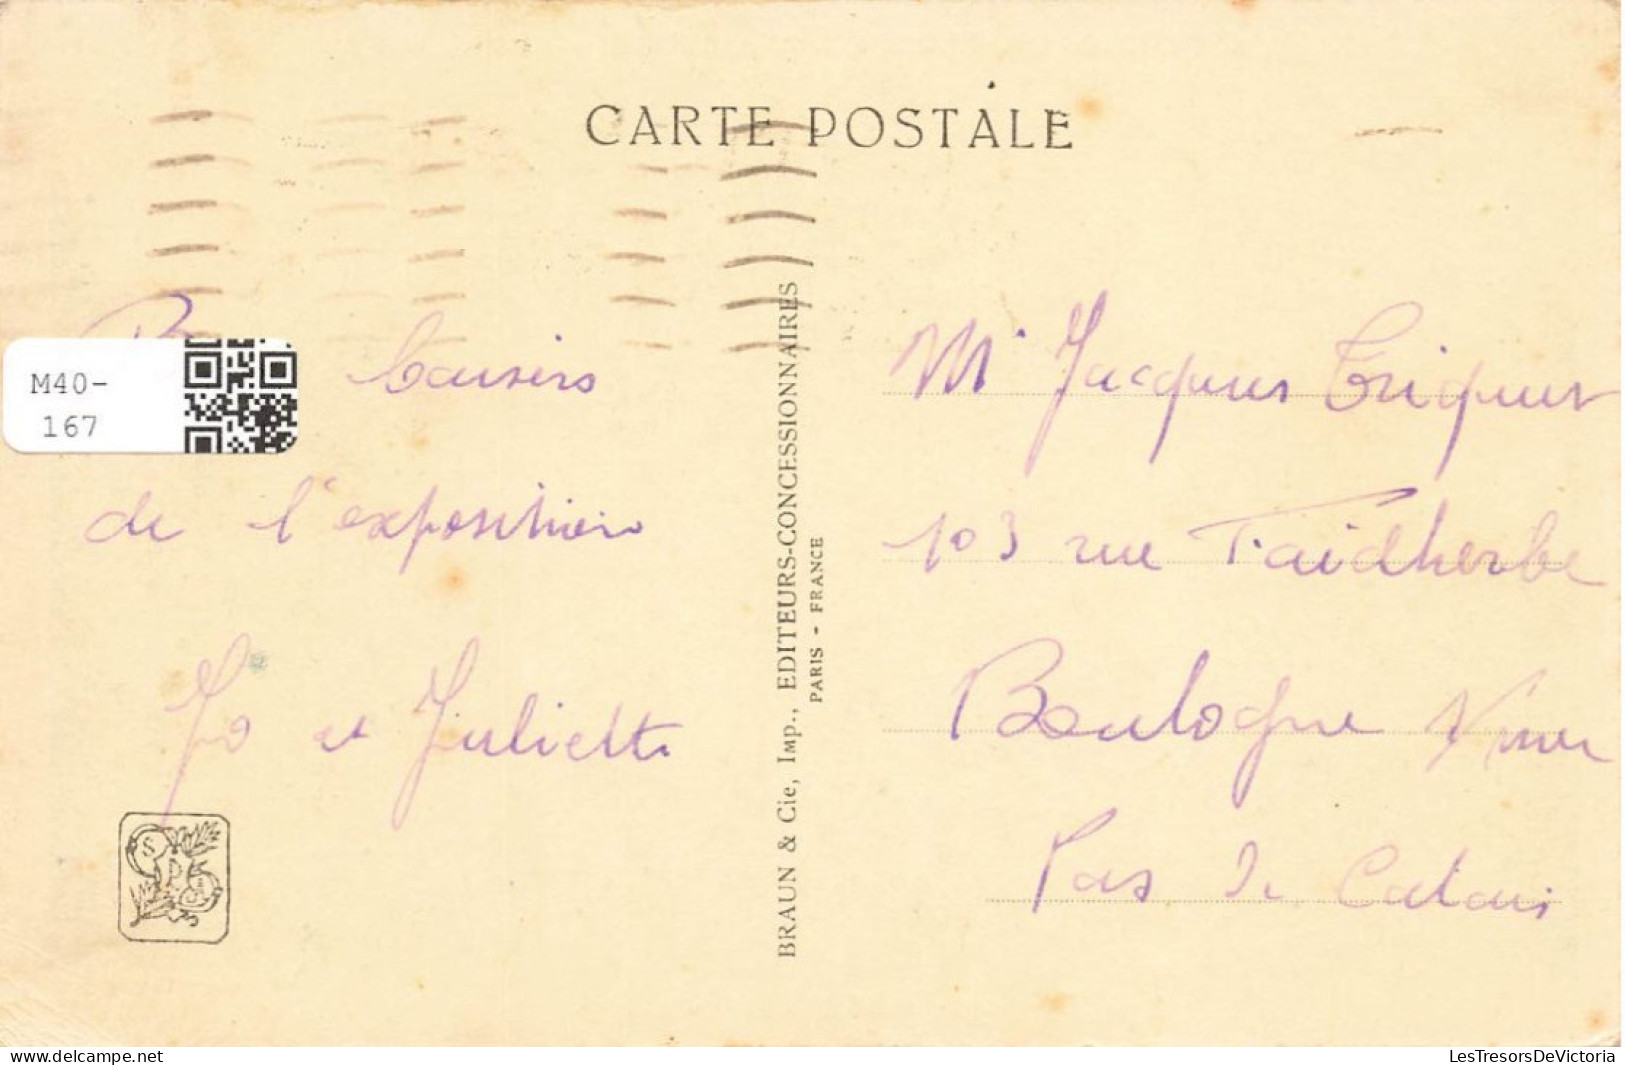 CARTE POSTALE
M40-
167
baisers
de l'exposition
Jo et Juliette
BRAUN & Cie, IMP., EDITEURS-CONCESSIONNAIRES
PARIS - FRANCE
Mr Jacques Triquet
103 rue Faidherbe
Boulogne s/mer
Pas de Calais
delcampe.net
LesTresorsDeVictoria